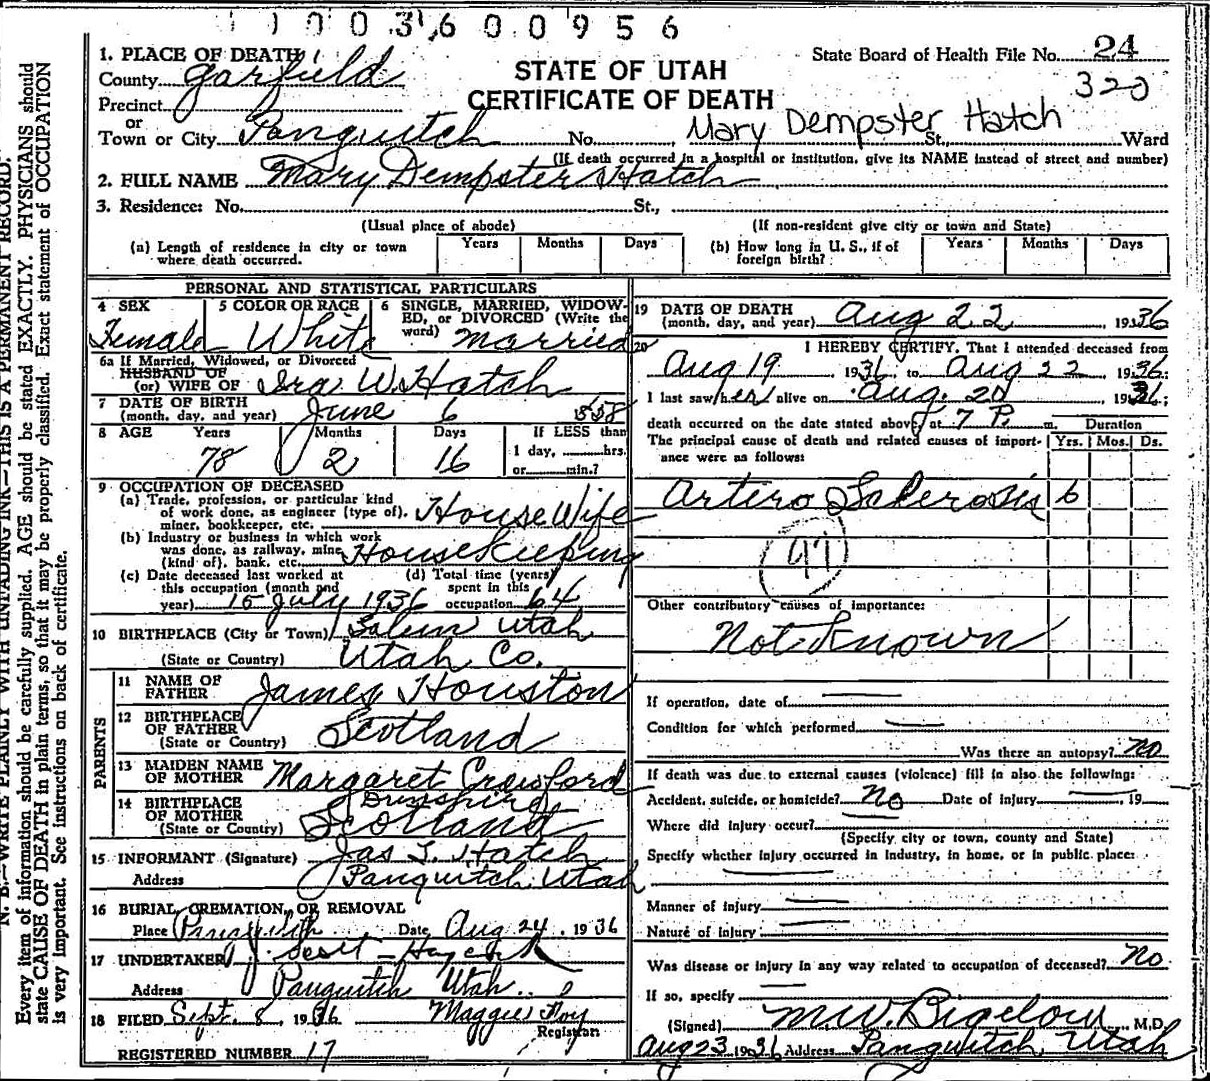 1 1 0 0 3 6 0 0 9 5 6
1. PLACE OF DEATH
State Board of Health File No. 24
County Garfield
STATE OF UTAH
320
Precinct
CERTIFICATE OF DEATH
or
Town or City Panguitch No. Mary Dempster Hatch St., Ward
(If death occurred in a hospital or institution, give its NAME instead of street and number)
2. FULL NAME Mary Dempster Hatch
3. Residence: No. St.,
(Usual place of abode) (If non-resident give city or town and State)
(a) Length of residence in city or town where death occurred. Years Months Days
(b) How long in U. S., if of foreign birth? Years Months Days
PERSONAL AND STATISTICAL PARTICULARS
4 SEX Female
5 COLOR OR RACE White
6 SINGLE, MARRIED, WIDOWED, OR DIVORCED (Write the word) Married
6a If Married, Widowed, or Divorced
HUSBAND OF
(or) WIFE OF Ira W. Hatch
7 DATE OF BIRTH
(month, day, and year) June 6 1858
8 AGE Years Months Days If LESS than
78 2 16 1 day, hrs.
or min.?
9 OCCUPATION OF DECEASED
(a) Trade, profession, or particular kind
of work done, as engineer (type of),
miner, bookkeeper, etc. House Wife
(b) Industry or business in which work
was done, as railway, mine
(kind of), bank, etc. Housekeeping
(c) Date deceased last worked at
this occupation (month and
year) 15 July 1936
(d) Total time (years)
spent in this
occupation 64
10 BIRTHPLACE (City or Town) Salem Utah
(State or Country) Utah Co.
PARENTS
11 NAME OF
FATHER James Houston
12 BIRTHPLACE
OF FATHER
(State or Country) Scotland
13 MAIDEN NAME
OF MOTHER Margaret Crawford
14 BIRTHPLACE
OF MOTHER
(State or Country) Scotland
15 INFORMANT (Signature) Jas T. Hatch
Address Panguitch, Utah
16 BURIAL, CREMATION, OR REMOVAL
Place Panguitch Date Aug 24, 1936
17 UNDERTAKER J. Scott
Address Panguitch Utah
18 FILED Sept. 8, 1936 Maggie Foy
Registrar
REGISTERED NUMBER 17
19 DATE OF DEATH
(month, day, and year) Aug 22 1936
20 I HEREBY CERTIFY, That I attended deceased from
Aug 19 1936, to Aug 22 1936;
I last saw her alive on Aug. 20 1936;
death occurred on the date stated above, at 7 P. m. Duration
The principal cause of death and related causes of importance were as follows: Yrs. Mos. Ds.
Artero Sclerosis 6
97
Other contributory causes of importance:
Not Known
If operation, date of
Condition for which performed
Was there an autopsy? No
If death was due to external causes (violence) fill in also the following:
Accident, suicide, or homicide? No Date of injury , 19
Where did injury occur?
(Specify city or town, county and State)
Specify whether injury occurred in industry, in home, or in public place:
Manner of injury
Nature of injury
Was disease or injury in any way related to occupation of deceased? No
If so, specify
(Signed) M.W. Bigelow, M.D.
Aug 23 1936 Address Panguitch, Utah
N. B.—WRITE PLAINLY WITH UNFADING INK—THIS IS A PERMANENT RECORD.
Every item of information should be carefully supplied. AGE should be stated EXACTLY. PHYSICIANS should
state CAUSE OF DEATH in plain terms, so that it may be properly classified. Exact statement of OCCUPATION
is very important. See instructions on back of certificate.